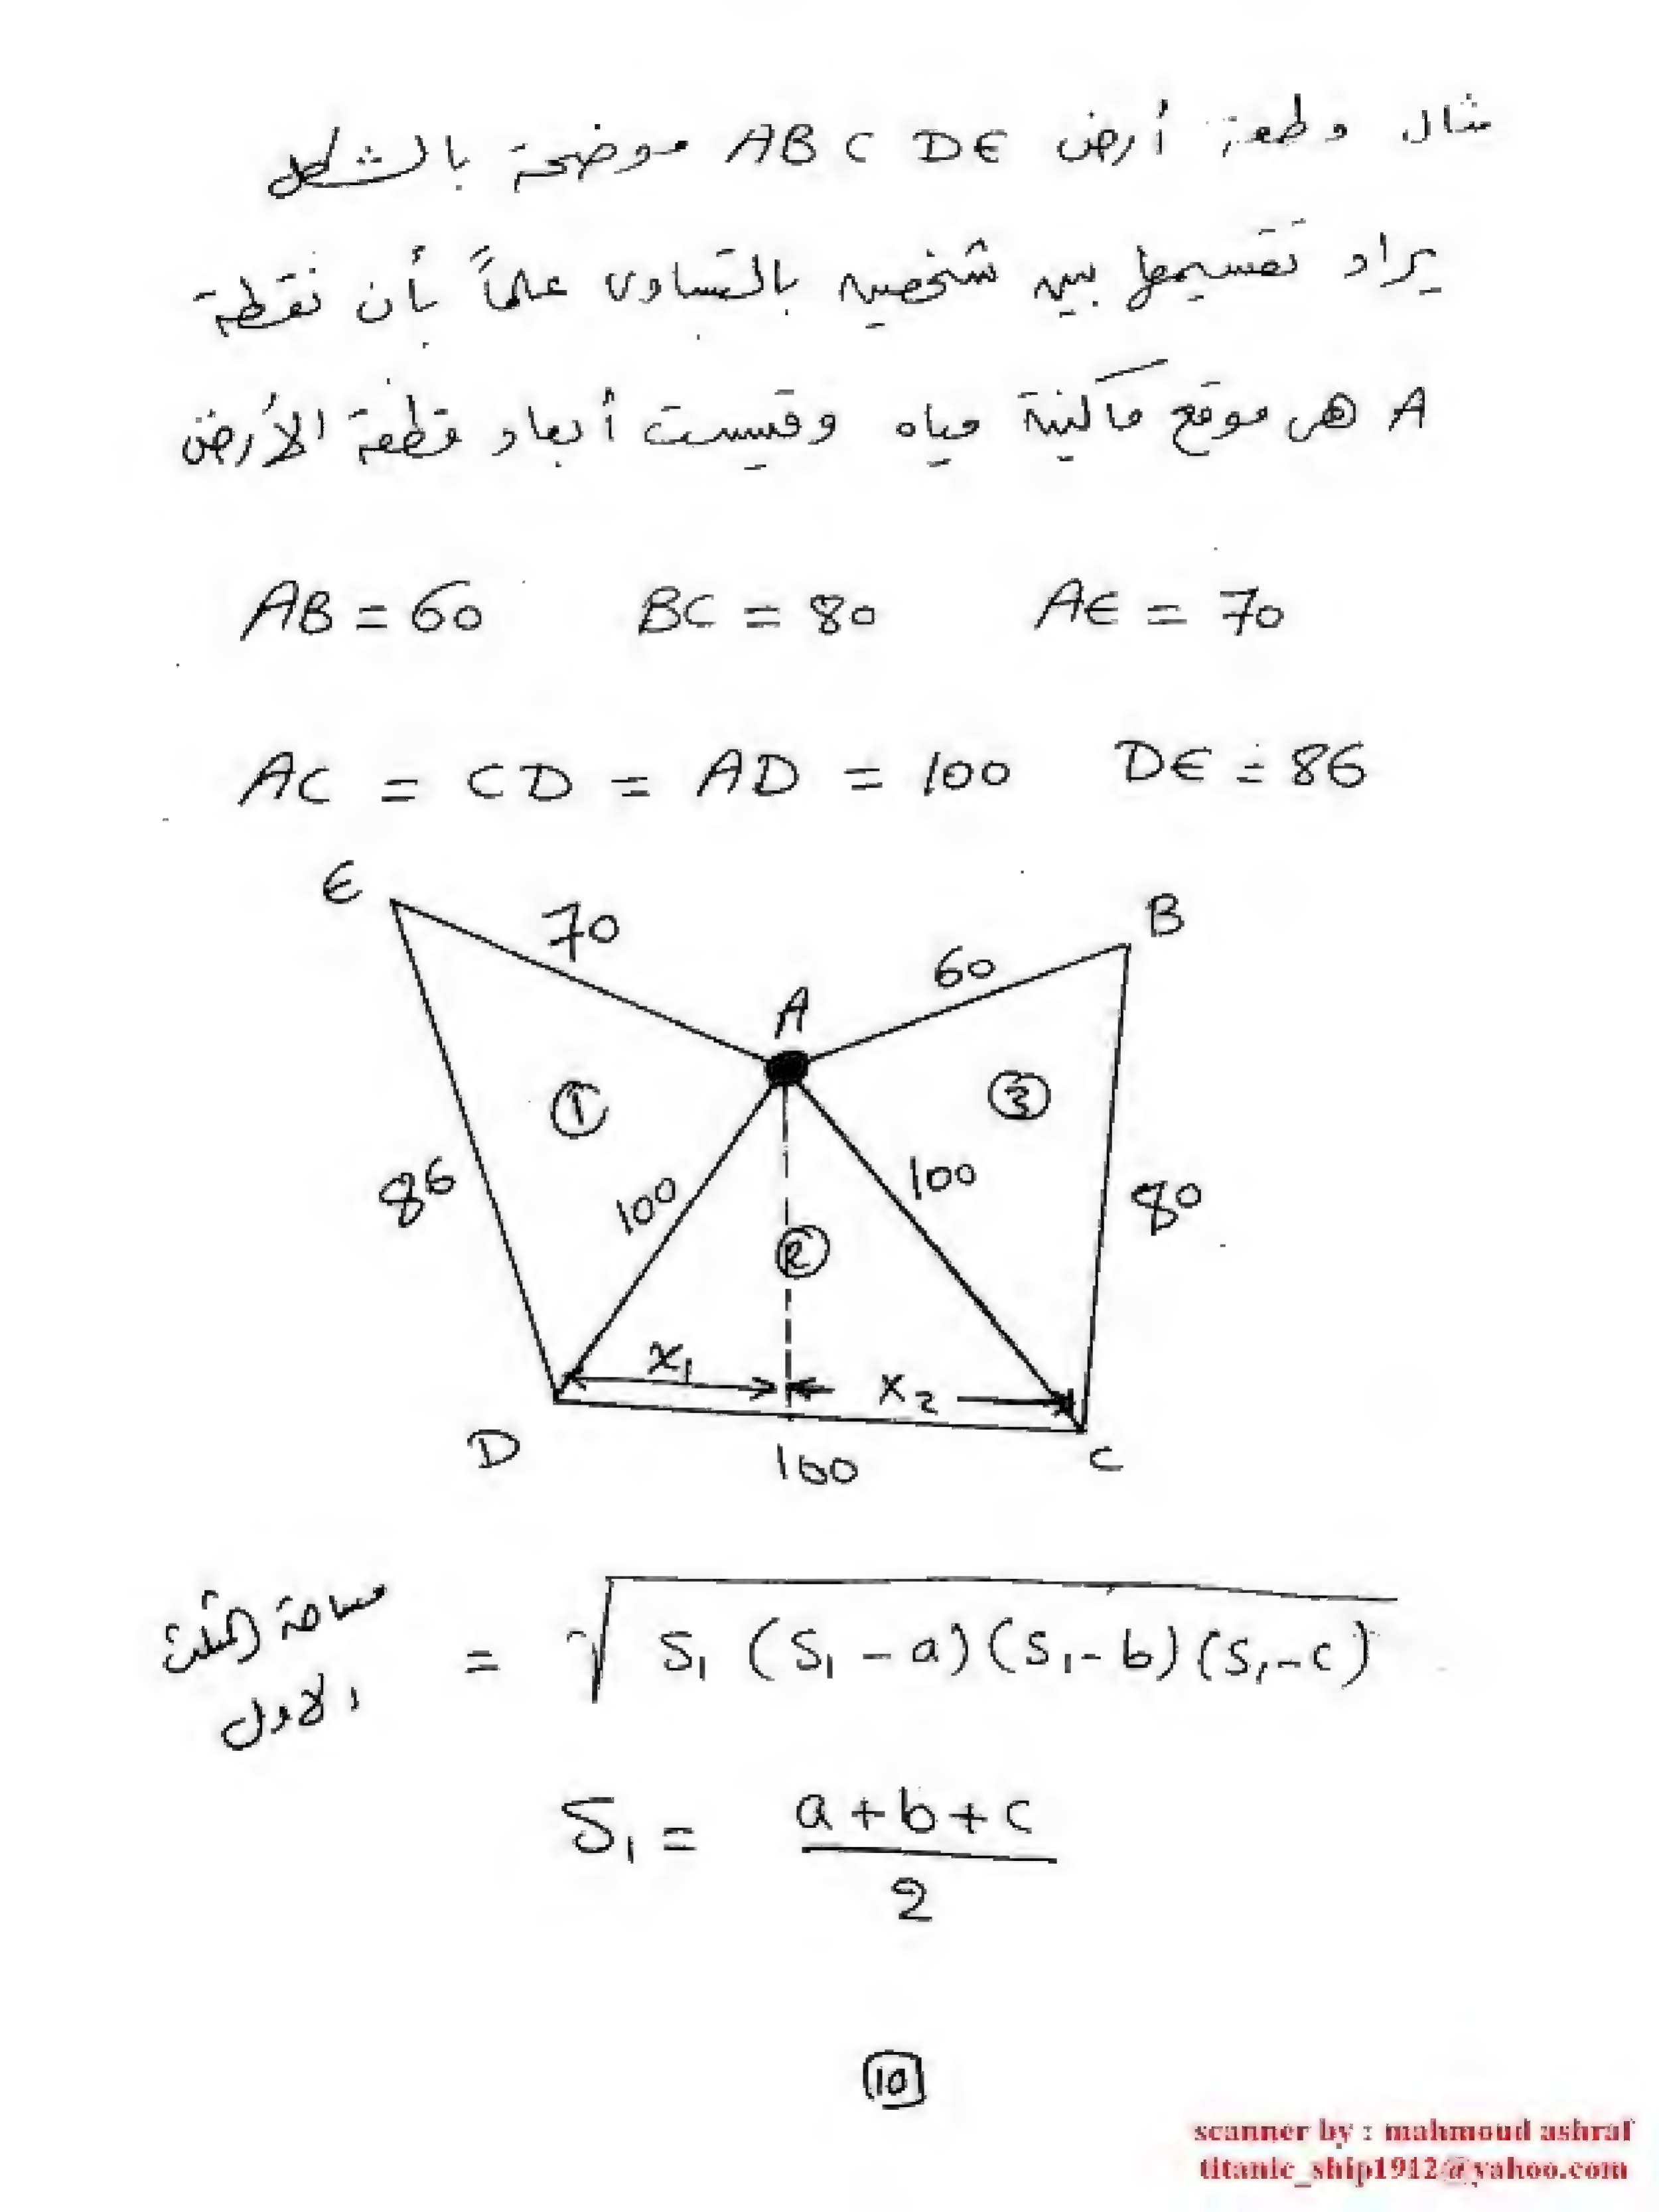 مثال قطعة أرض ABCDE موضحة بالشكل
يراد تقسيمها بين شخصين بالتساوى علماً بأن نقطة
A هى موقع ماكينة مياه وقيست أبعاد قطعة الأرض
AB = 60 BC = 80 AE = 70
AC = CD = AD = 100 DE = 86
E
70
B
60
A
1
3
86
100
100
80
2
x1
x2
D
100
C
مساحة المثلث
الاول
= √ S1 (S1 - a)(S1 - b)(S1 - c)
S1 = a + b + c
2
10
scanner by : mahmoud ashraf
titanic_ship1912@yahoo.com